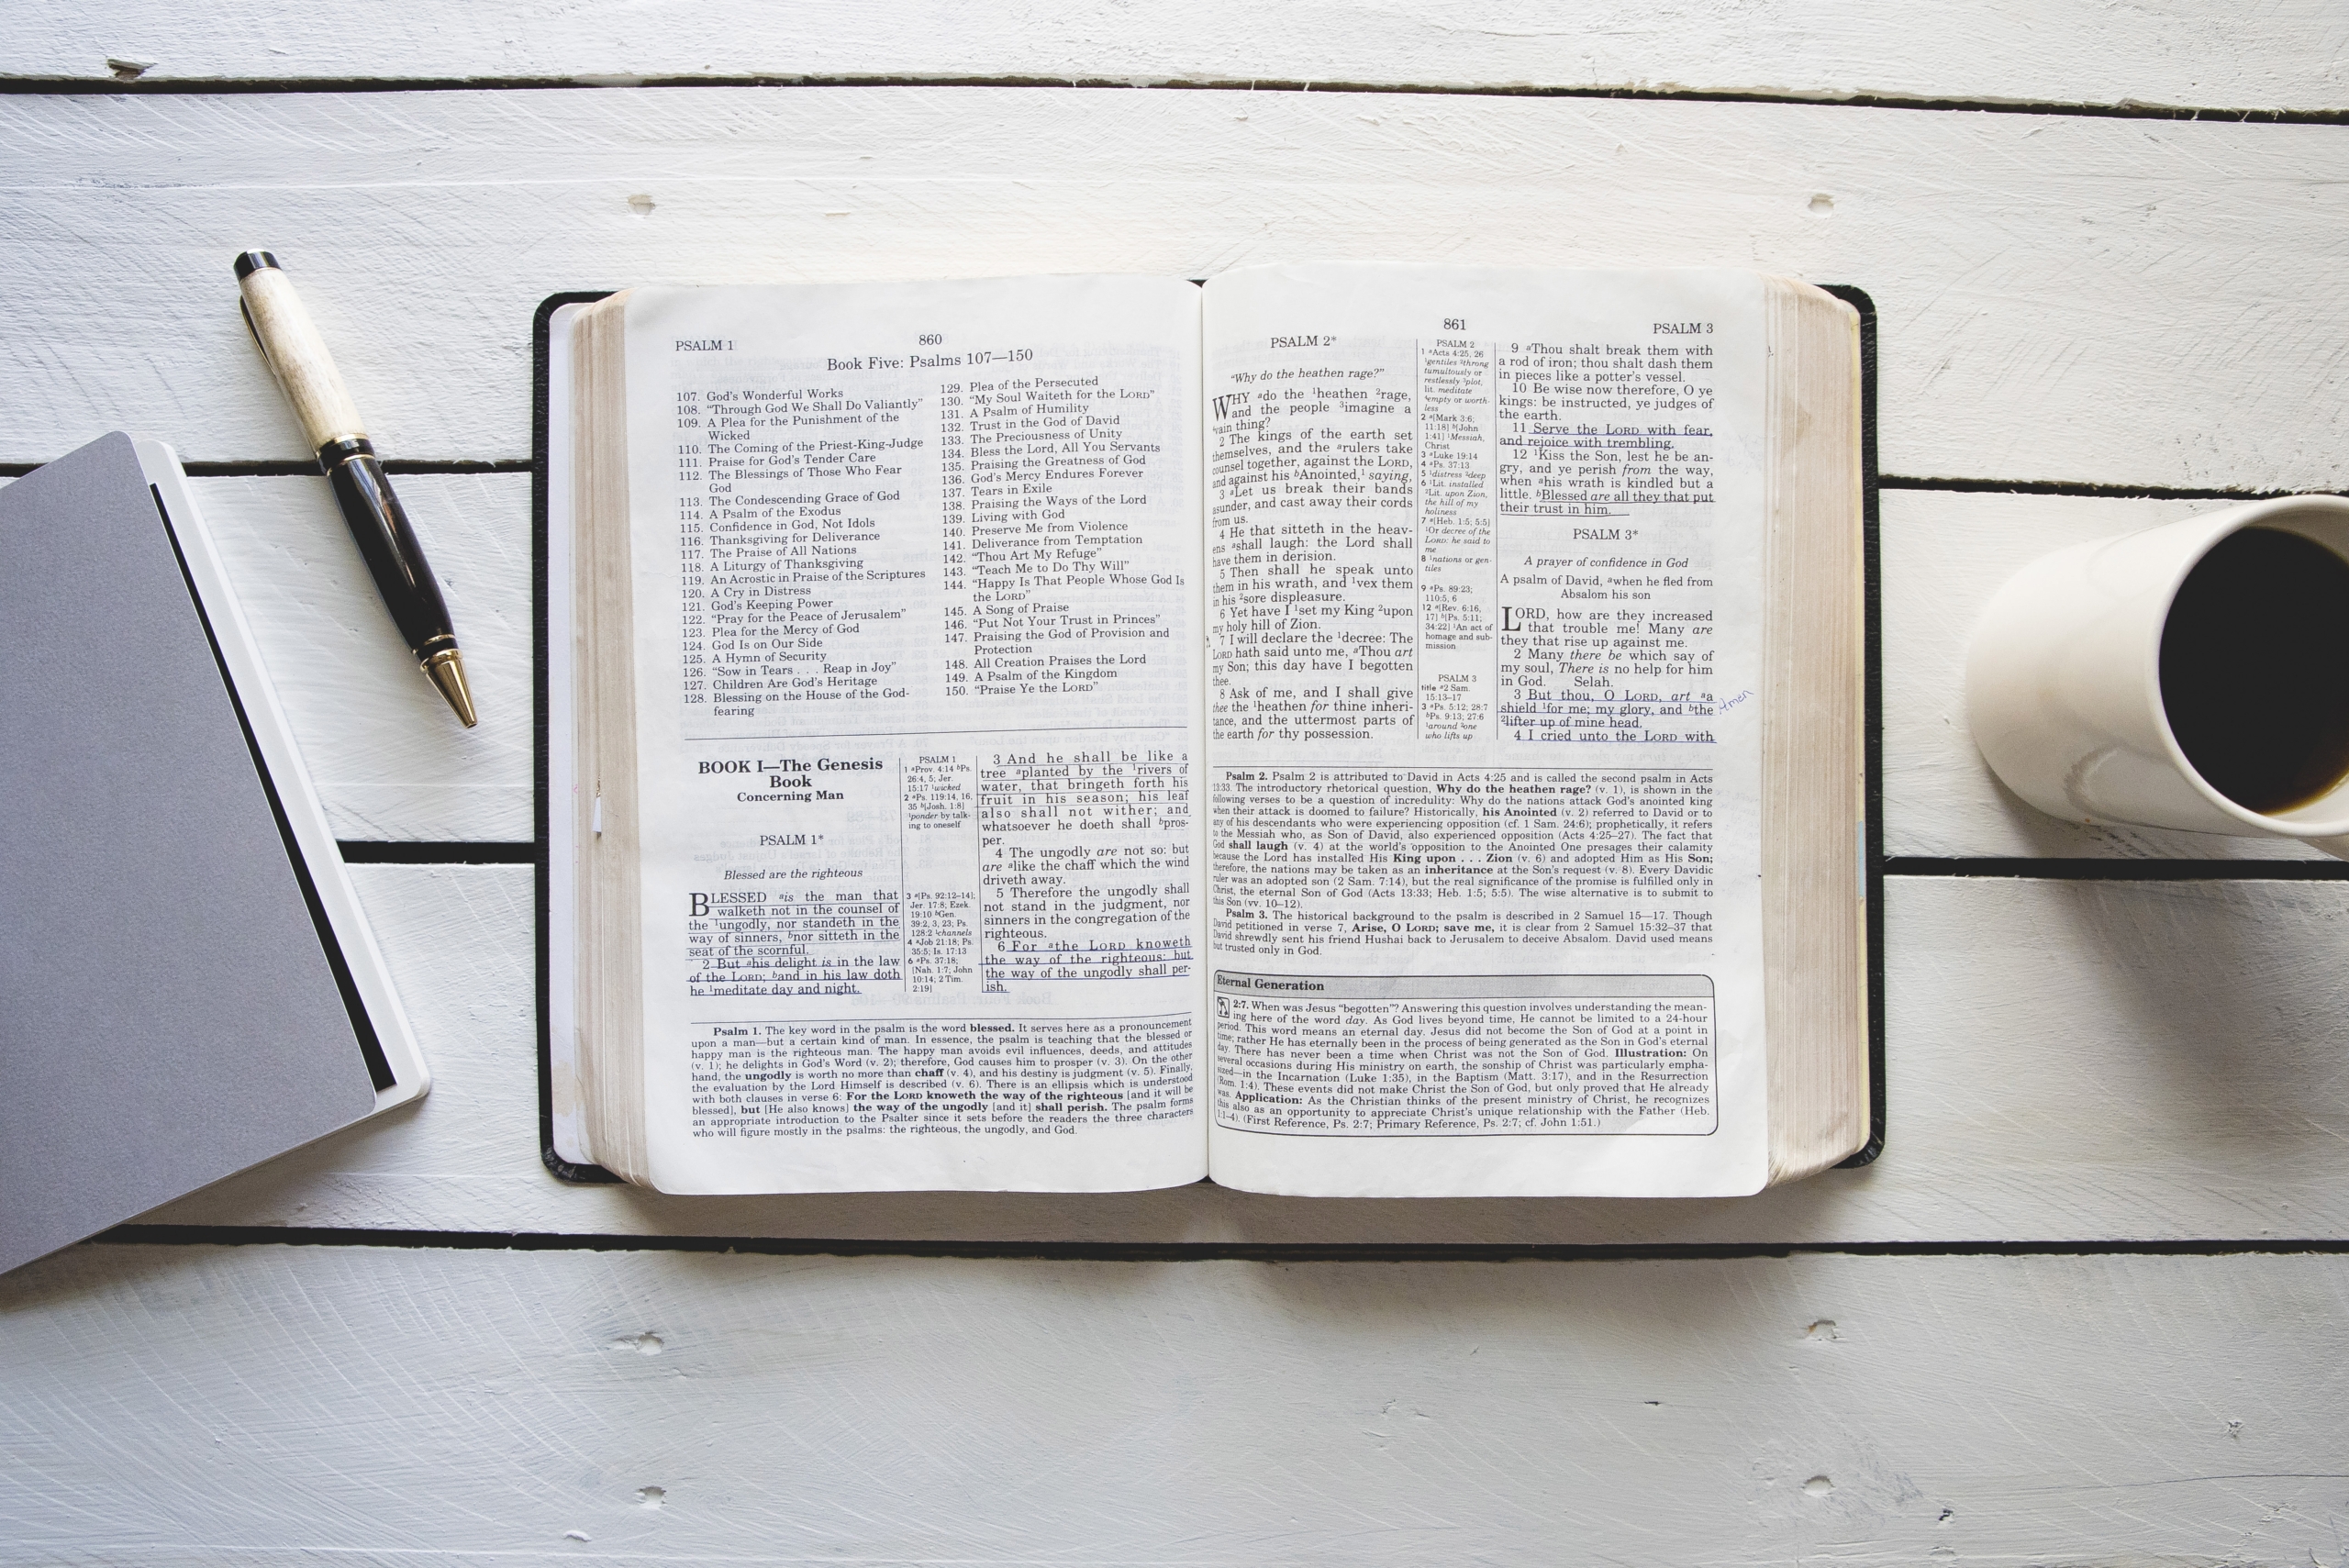 PSALM 1
860
Book Five: Psalms 107—150
107. God's Wonderful Works
108. “Through God We Shall Do Valiantly”
109. A Plea for the Punishment of the
Wicked
110. The Coming of the Priest-King-Judge
111. Praise for God's Tender Care
112. The Blessings of Those Who Fear
God
113. The Condescending Grace of God
114. A Psalm of the Exodus
115. Confidence in God, Not Idols
116. Thanksgiving for Deliverance
117. The Praise of All Nations
118. A Liturgy of Thanksgiving
119. An Acrostic in Praise of the Scriptures
120. A Cry in Distress
121. God's Keeping Power
122. “Pray for the Peace of Jerusalem”
123. Plea for the Mercy of God
124. God Is on Our Side
125. A Hymn of Security
126. “Sow in Tears . . . Reap in Joy”
127. Children Are God's Heritage
128. Blessing on the House of the God-
fearing
129. Plea of the Persecuted
130. “My Soul Waiteth for the LORD”
131. A Psalm of Humility
132. Trust in the God of David
133. The Preciousness of Unity
134. Bless the Lord, All You Servants
135. Praising the Greatness of God
136. God's Mercy Endures Forever
137. Tears in Exile
138. Praising the Ways of the Lord
139. Living with God
140. Preserve Me from Violence
141. Deliverance from Temptation
142. “Thou Art My Refuge”
143. “Teach Me to Do Thy Will”
144. “Happy Is That People Whose God Is
the LORD”
145. A Song of Praise
146. “Put Not Your Trust in Princes”
147. Praising the God of Provision and
Protection
148. All Creation Praises the Lord
149. A Psalm of the Kingdom
150. “Praise Ye the LORD”
BOOK I—The Genesis
Book
Concerning Man
PSALM 1*
Blessed are the righteous
BLESSED ᵃis the man that
walketh not in the counsel of
the ¹ungodly, nor standeth in the
way of sinners, ᵇnor sitteth in the
seat of the scornful.
2 But ᵃhis delight is in the law
of the LORD; ᵇand in his law doth
he ¹meditate day and night.
PSALM 1
1 ᵃProv. 4:14 ᵇPs.
26:4, 5; Jer.
15:17 ¹wicked
2 ᵃPs. 119:14, 16,
35 ᵇ[Josh. 1:8]
¹ponder by talk-
ing to oneself
3 ᵃ[Ps. 92:12–14];
Jer. 17:8; Ezek.
19:10 ᵇGen.
39:2, 3, 23; Ps.
128:2 ¹channels
4 ᵃJob 21:18; Ps.
35:5; Is. 17:13
6 ᵃPs. 37:18;
[Nah. 1:7; John
10:14; 2 Tim.
2:19]
3 And he shall be like a
tree ᵃplanted by the ¹rivers of
water, that bringeth forth his
fruit in his season; his leaf
also shall not wither; and
whatsoever he doeth shall ᵇpros-
per.
4 The ungodly are not so: but
are ᵃlike the chaff which the wind
driveth away.
5 Therefore the ungodly shall
not stand in the judgment, nor
sinners in the congregation of the
righteous.
6 For ᵃthe LORD knoweth
the way of the righteous: but
the way of the ungodly shall per-
ish.
Psalm 1. The key word in the psalm is the word blessed. It serves here as a pronouncement
upon a man—but a certain kind of man. In essence, the psalm is teaching that the blessed or
happy man is the righteous man. The happy man avoids evil influences, deeds, and attitudes
(v. 1); he delights in God's Word (v. 2); therefore, God causes him to prosper (v. 3). On the other
hand, the ungodly is worth no more than chaff (v. 4), and his destiny is judgment (v. 5). Finally,
the evaluation by the Lord Himself is described (v. 6). There is an ellipsis which is understood
with both clauses in verse 6: For the LORD knoweth the way of the righteous [and it will be
blessed], but [He also knows] the way of the ungodly [and it] shall perish. The psalm forms
an appropriate introduction to the Psalter since it sets before the readers the three characters
who will figure mostly in the psalms: the righteous, the ungodly, and God.
861
PSALM 3
PSALM 2*
“Why do the heathen rage?”
WHY ᵃdo the ¹heathen ²rage,
and the people ³imagine a
⁴vain thing?
2 The kings of the earth set
themselves, and the ᵃrulers take
counsel together, against the LORD,
and against his ᵇAnointed,¹ saying,
3 ᵃLet us break their bands
asunder, and cast away their cords
from us.
4 He that sitteth in the heav-
ens ᵃshall laugh: the Lord shall
have them in derision.
5 Then shall he speak unto
them in his wrath, and ¹vex them
in his ²sore displeasure.
6 Yet have I ¹set my King ²upon
my holy hill of Zion.
7 I will declare the ¹decree: The
LORD hath said unto me, ᵃThou art
my Son; this day have I begotten
thee.
8 Ask of me, and I shall give
thee the ¹heathen for thine inheri-
tance, and the uttermost parts of
the earth for thy possession.
PSALM 2
1 ᵃActs 4:25, 26
¹gentiles ²throng
tumultously or
restlessly ³plot,
lit. meditate
⁴empty or worth-
less
2 ᵃ[Mark 3:6;
11:18] ᵇ[John
1:41] ¹Messiah,
Christ
3 ᵃLuke 19:14
4 ᵃPs. 37:13
5 ¹distress ²deep
6 ¹Lit. installed
²Lit. upon Zion,
the hill of my
holiness
7 ᵃ[Heb. 1:5; 5:5]
¹Or decree of the
LORD: he said to
me
8 ¹nations or gen-
tiles
9 ᵃPs. 89:23;
110:5, 6
12 ᵃ[Rev. 6:16,
17] ᵇ[Ps. 5:11;
34:22] ¹An act of
homage and sub-
mission
PSALM 3
title ᵃ2 Sam.
15:13–17
3 ᵃPs. 5:12; 28:7
ᵇPs. 9:13; 27:6
¹around ²one
who lifts up
9 ᵃThou shalt break them with
a rod of iron; thou shalt dash them
in pieces like a potter's vessel.
10 Be wise now therefore, O ye
kings: be instructed, ye judges of
the earth.
11 Serve the LORD with fear,
and rejoice with trembling.
12 ¹Kiss the Son, lest he be an-
gry, and ye perish from the way,
when ᵃhis wrath is kindled but a
little. ᵇBlessed are all they that put
their trust in him.
PSALM 3*
A prayer of confidence in God
A psalm of David, ᵃwhen he fled from
Absalom his son
LORD, how are they increased
that trouble me! Many are
they that rise up against me.
2 Many there be which say of
my soul, There is no help for him
in God. Selah.
3 But thou, O LORD, art ᵃa
shield ¹for me; my glory, and ᵇthe
²lifter up of mine head.
4 I cried unto the LORD with
Amen
Psalm 2. Psalm 2 is attributed to David in Acts 4:25 and is called the second psalm in Acts
13:33. The introductory rhetorical question, Why do the heathen rage? (v. 1), is shown in the
following verses to be a question of incredulity: Why do the nations attack God's anointed king
when their attack is doomed to failure? Historically, his Anointed (v. 2) referred to David or to
any of his descendants who were experiencing opposition (cf. 1 Sam. 24:6); prophetically, it refers
to the Messiah who, as Son of David, also experienced opposition (Acts 4:25–27). The fact that
God shall laugh (v. 4) at the world's opposition to the Anointed One presages their calamity
because the Lord has installed His King upon . . . Zion (v. 6) and adopted Him as His Son;
therefore, the nations may be taken as an inheritance at the Son's request (v. 8). Every Davidic
ruler was an adopted son (2 Sam. 7:14), but the real significance of the promise is fulfilled only in
Christ, the eternal Son of God (Acts 13:33; Heb. 1:5; 5:5). The wise alternative is to submit to
this Son (vv. 10–12).
Psalm 3. The historical background to the psalm is described in 2 Samuel 15—17. Though
David petitioned in verse 7, Arise, O LORD; save me, it is clear from 2 Samuel 15:32–37 that
David shrewdly sent his friend Hushai back to Jerusalem to deceive Absalom. David used means
but trusted only in God.
Eternal Generation
2:7. When was Jesus “begotten”? Answering this question involves understanding the mean-
ing here of the word day. As God lives beyond time, He cannot be limited to a 24-hour
period. This word means an eternal day. Jesus did not become the Son of God at a point in
time; rather He has eternally been in the process of being generated as the Son in God's eternal
day. There has never been a time when Christ was not the Son of God. Illustration: On
several occasions during His ministry on earth, the sonship of Christ was particularly empha-
sized—in the Incarnation (Luke 1:35), in the Baptism (Matt. 3:17), and in the Resurrection
(Rom. 1:4). These events did not make Christ the Son of God, but only proved that He already
was. Application: As the Christian thinks of the present ministry of Christ, he recognizes
this also as an opportunity to appreciate Christ's unique relationship with the Father (Heb.
1:1–4). (First Reference, Ps. 2:7; Primary Reference, Ps. 2:7; cf. John 1:51.)